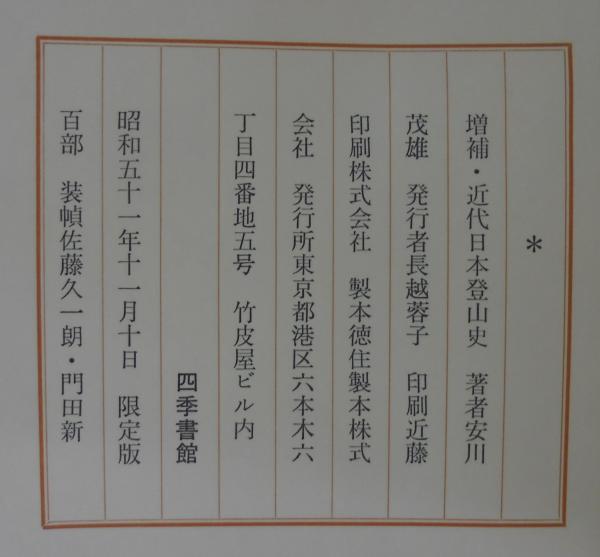 ＊
増補・近代日本登山史　著者安川
茂雄　発行者長越蓉子　印刷近藤
印刷株式会社　製本徳住製本株式
会社　発行所東京都港区六本木六
丁目四番地五号　竹皮屋ビル内
四季書館
昭和五十一年十一月十日　限定版
百部　装幀佐藤久一朗・門田新